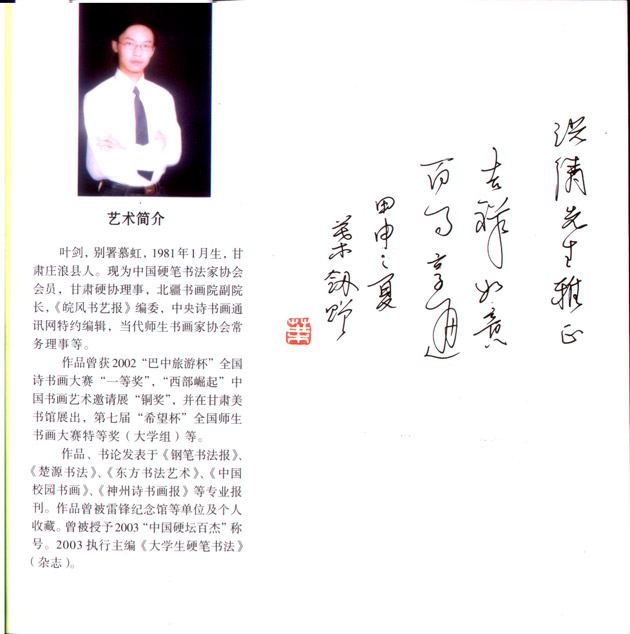 艺术简介
叶剑，别署慕虹，1981年1月生，甘
肃庄浪县人。现为中国硬笔书法家协会
会员，甘肃硬协理事，北疆书画院副院
长，《皖风书艺报》编委，中央诗书画通
讯网特约编辑，当代师生书画家协会常
务理事等。
作品曾获2002“巴中旅游杯”全国
诗书画大赛“一等奖”，“西部崛起”中
国书画艺术邀请展“铜奖”，并在甘肃美
书馆展出，第七届“希望杯”全国师生
书画大赛特等奖（大学组）等。
作品、书论发表于《钢笔书法报》、
《楚源书法》、《东方书法艺术》、《中国
校园书画》、《神州诗书画报》等专业报
刊。作品曾被雷锋纪念馆等单位及个人
收藏。曾被授予2003“中国硬坛百杰”称
号。2003执行主编《大学生硬笔书法》
（杂志）。
洪清先生雅正
吉祥如意
百事亨通
甲申之夏
葉劍赠
葉